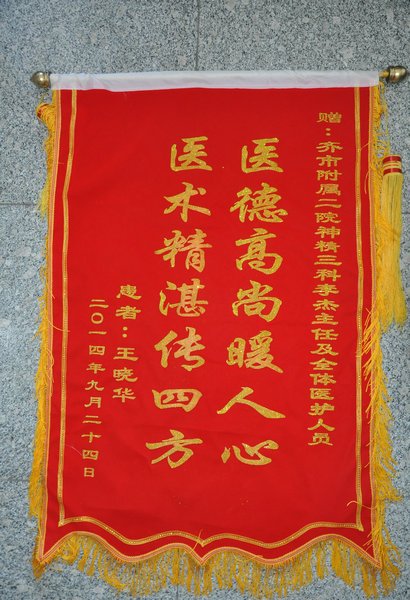 赠：齐市附属二院神精三科李杰主任及全体医护人员
医德高尚暖人心
医术精湛传四方
患者：王晓华
二〇一四年九月二十四日